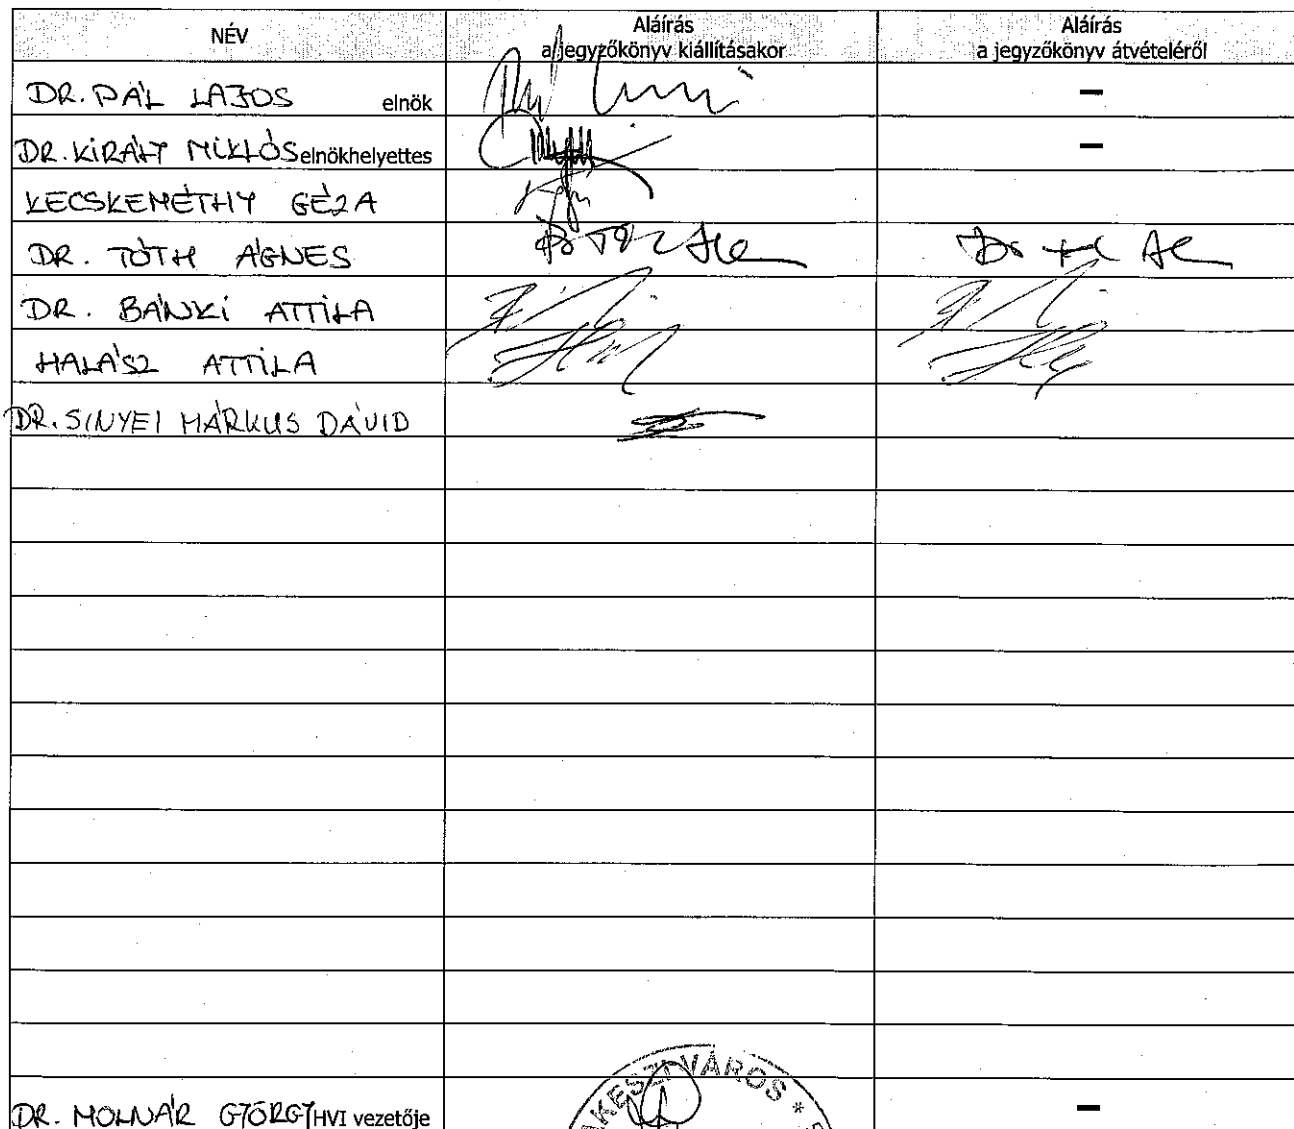 NÉV
Aláírás
a jegyzőkönyv kiállításakor
Aláírás
a jegyzőkönyv átvételéről
DR. PÁL LAJOS elnök –
DR. KIRÁLY MIKLÓS elnökhelyettes –
KECSKEMÉTHY GÉZA
DR. TÓTH ÁGNES
DR. BÁNKI ATTILA
HALÁSZ ATTILA
DR. SINYEI MÁRKUS DÁVID
AKESZI VÁROS *
DR. MOLNÁR GYÖRGY HVI vezetője –